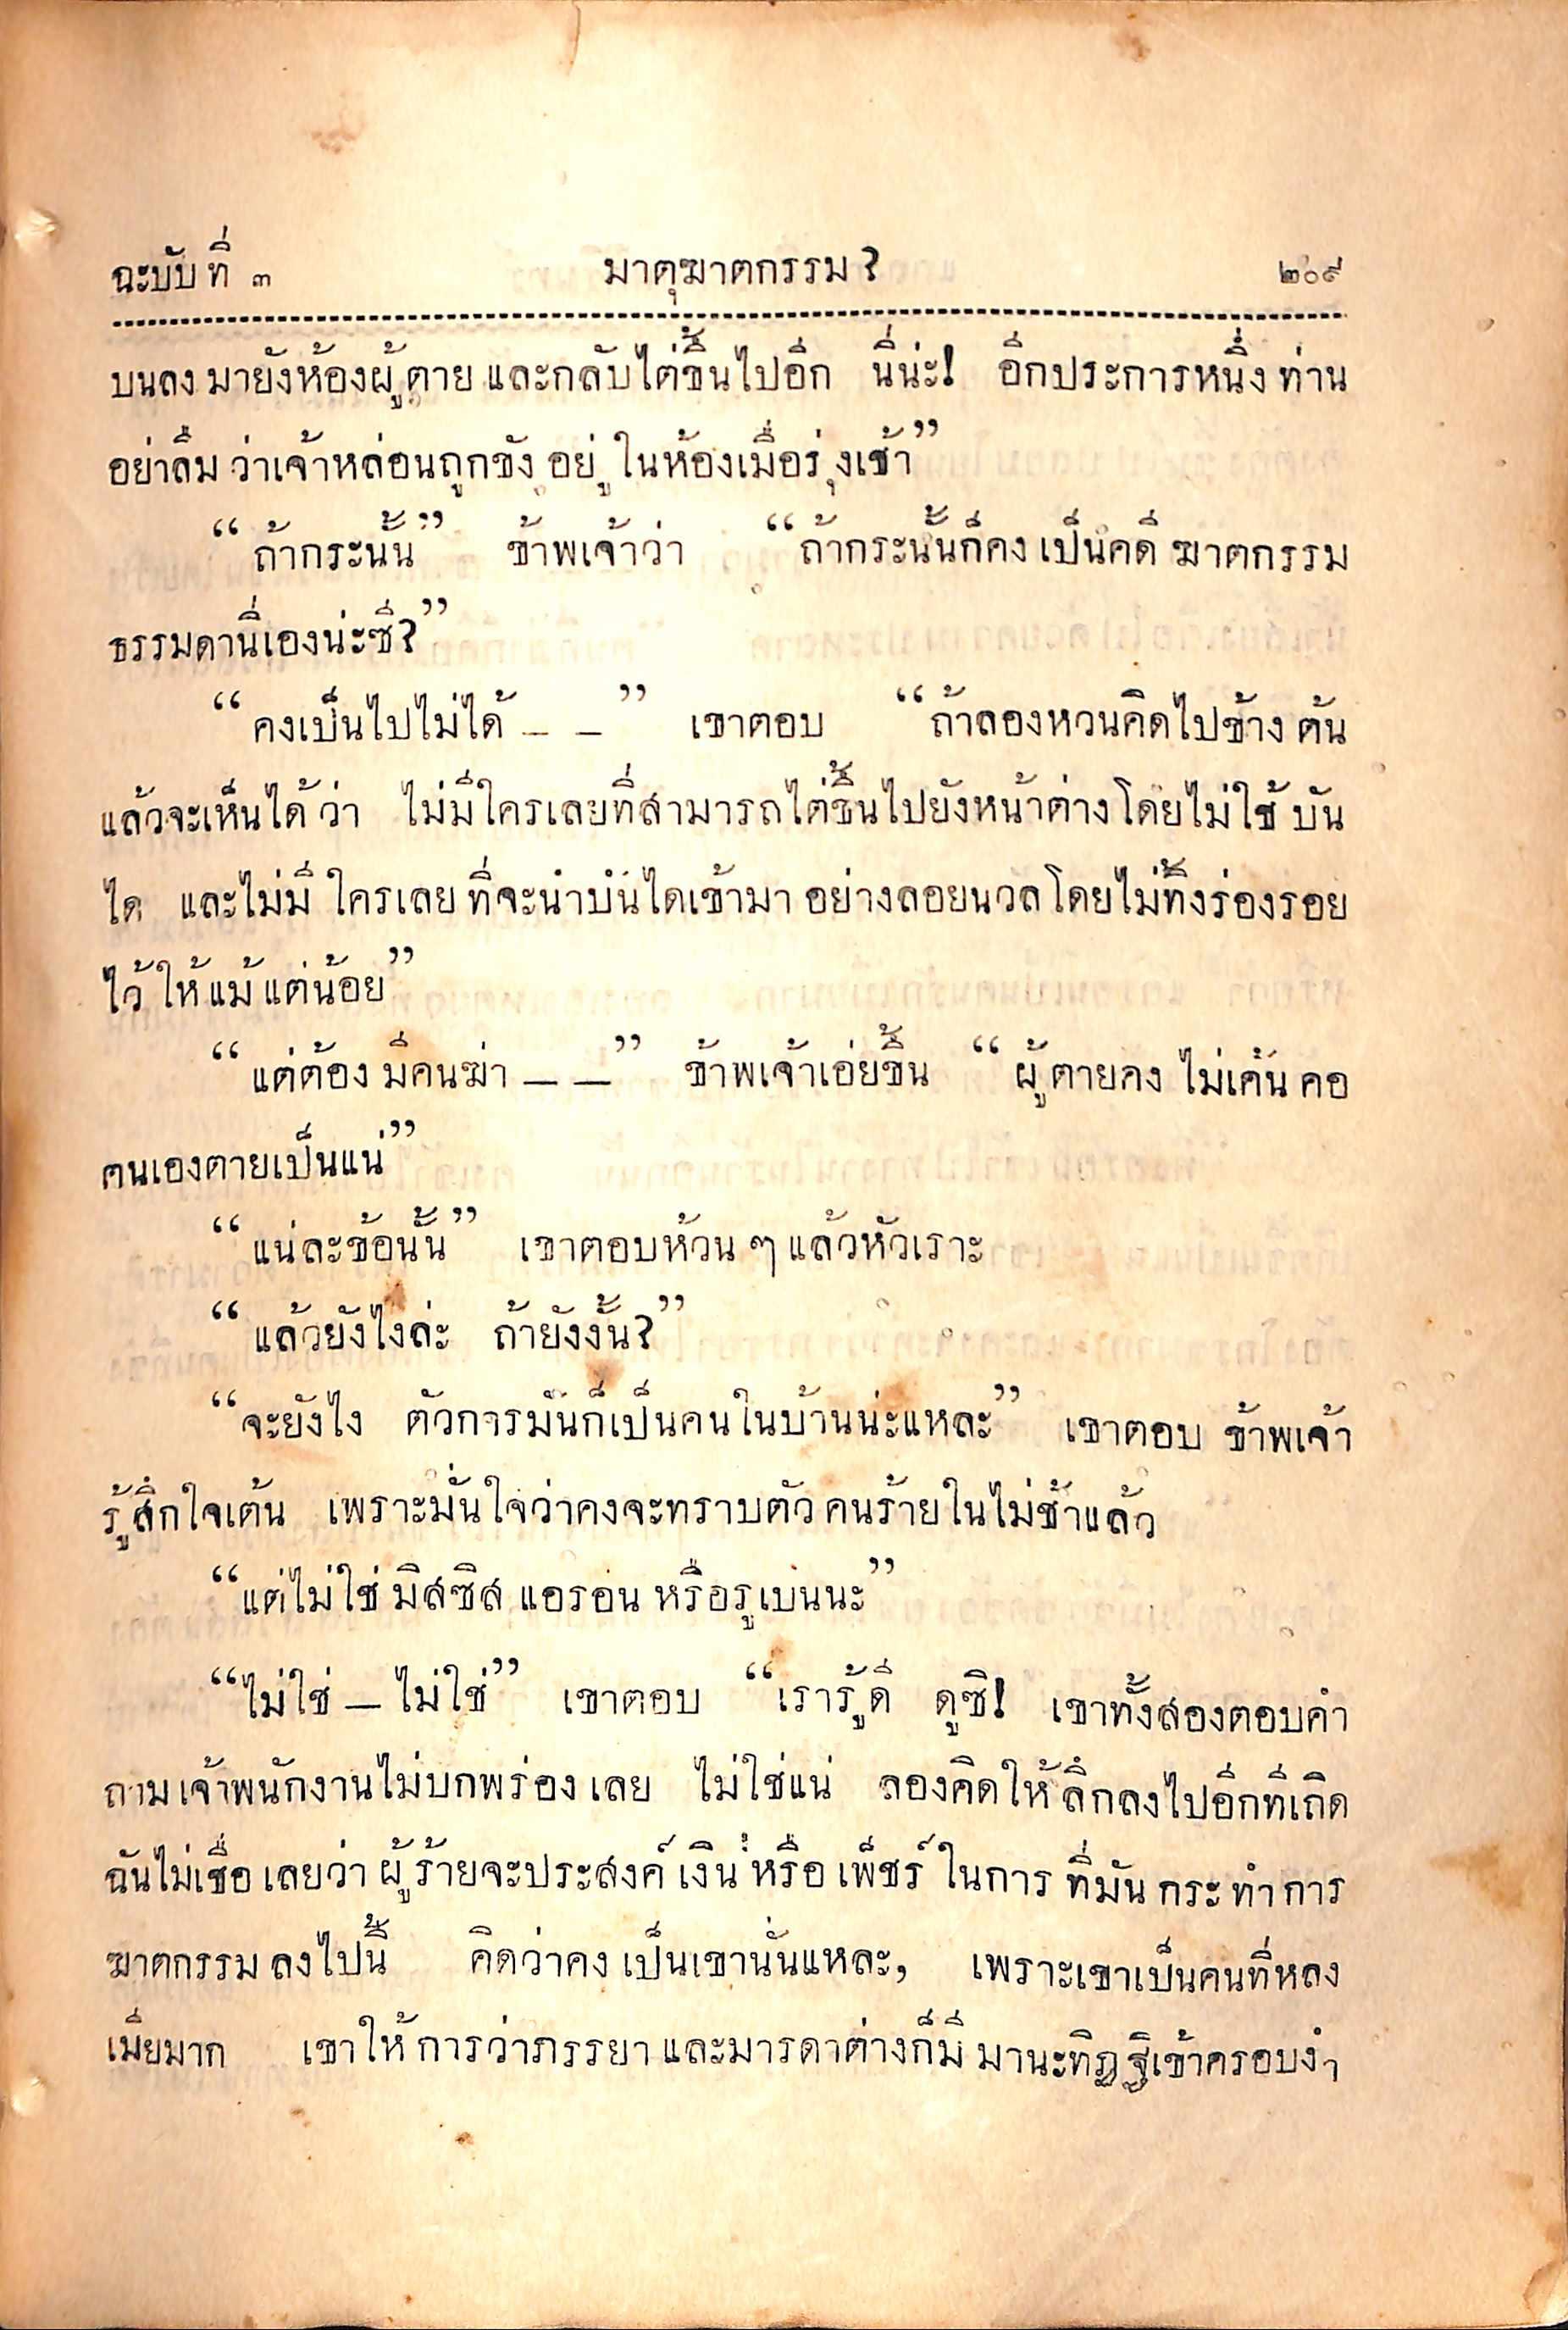 ฉะบับที่ ๓ มาตุฆาตกรรม? ๒๐๙
บนลงมายังห้องผู้ตาย และกลับไต่ขึ้นไปอีก นี่น่ะ! อีกประการหนึ่ง ท่าน
อย่าลืมว่าเจ้าหล่อนถูกขังอยู่ในห้องเมื่อรุ่งเช้า”
“ถ้ากระนั้น” ข้าพเจ้าว่า “ถ้ากระนั้นก็คงเป็นคดีฆาตกรรม
ธรรมดานี่เองน่ะซี?”
“คงเป็นไปไม่ได้ — —” เขาตอบ “ถ้าลองหวนคิดไปข้างต้น
แล้วจะเห็นได้ว่า ไม่มีใครเลยที่สามารถไต่ขึ้นไปยังหน้าต่างโดยไม่ใช้บัน
ได และไม่มีใครเลยที่จะนำบันไดเข้ามาอย่างลอยนวลโดยไม่ทิ้งร่องรอย
ไว้ให้แม้แต่น้อย”
“แต่ต้องมีคนฆ่า — —” ข้าพเจ้าเอ่ยขึ้น “ผู้ตายคงไม่เค้นคอ
ตนเองตายเป็นแน่”
“แน่ละข้อนั้น” เขาตอบห้วน ๆ แล้วหัวเราะ
“แล้วยังไงล่ะ ถ้ายังงั้น?”
“จะยังไง ตัวการมันก็เป็นคนในบ้านน่ะแหละ” เขาตอบ ข้าพเจ้า
รู้สึกใจเต้น เพราะมั่นใจว่าคงจะทราบตัวคนร้ายในไม่ช้าแล้ว
“แต่ไม่ใช่มิสซิสแอรอน หรือรูเบนนะ”
“ไม่ใช่ — ไม่ใช่” เขาตอบ “เรารู้ดี ดูซิ! เขาทั้งสองตอบคำ
ถามเจ้าพนักงานไม่บกพร่องเลย ไม่ใช่แน่ ลองคิดให้ลึกลงไปอีกทีเถิด
ฉันไม่เชื่อเลยว่า ผู้ร้ายจะประสงค์เงินหรือเพ็ชร์ในการที่มันกระทำการ
ฆาตกรรมลงไปนี้ คิดว่าคงเป็นเขานั่นแหละ, เพราะเขาเป็นคนที่หลง
เมียมาก เขาให้การว่าภรรยาและมารดาต่างก็มีมานะทิฏฐิเข้าครอบงำ